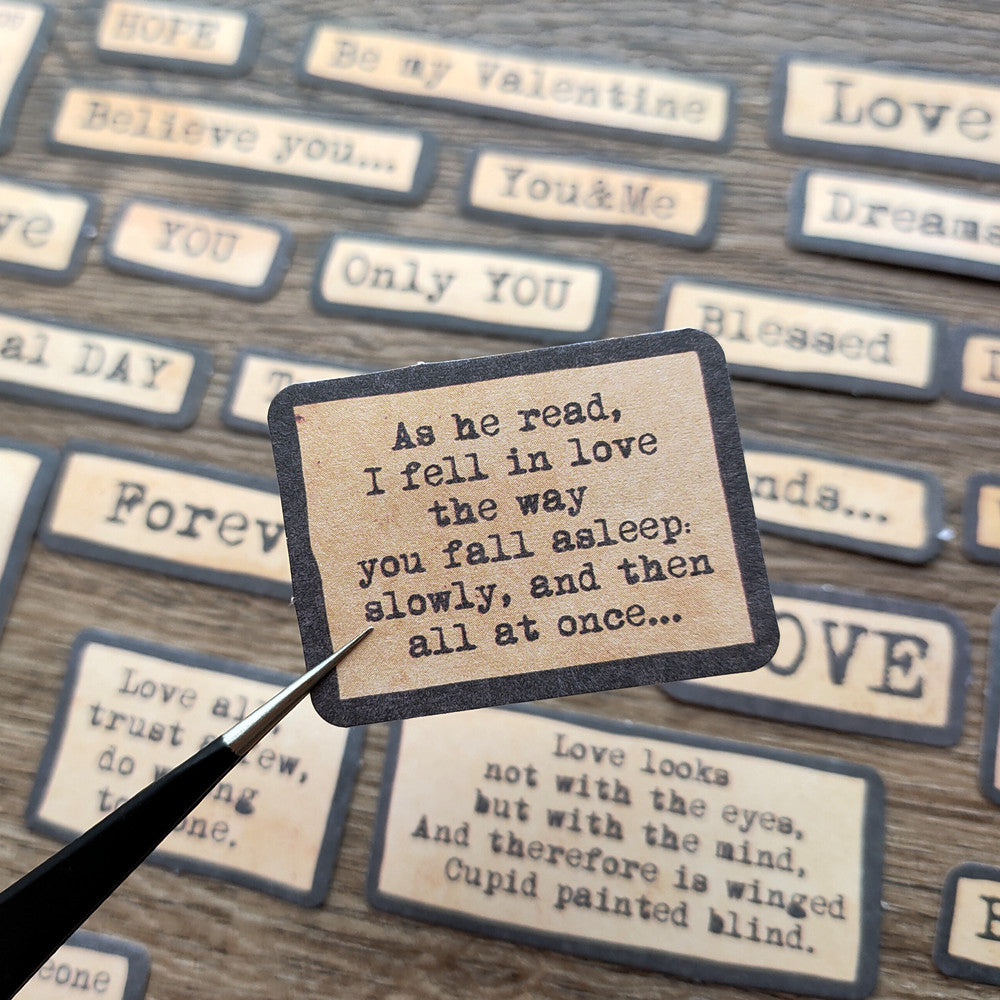 HOPE
Be my Valentine
Love
Believe you...
You&Me
Dreams
YOU
Only YOU
Blessed
al DAY
As he read,
I fell in love
the way
you fall asleep:
slowly, and then
all at once...
nds...
OVE
Love
trust ew,
do
one.
Love looks
not with the eyes,
but with the mind,
And therefore is winged
Cupid painted blind.
eone